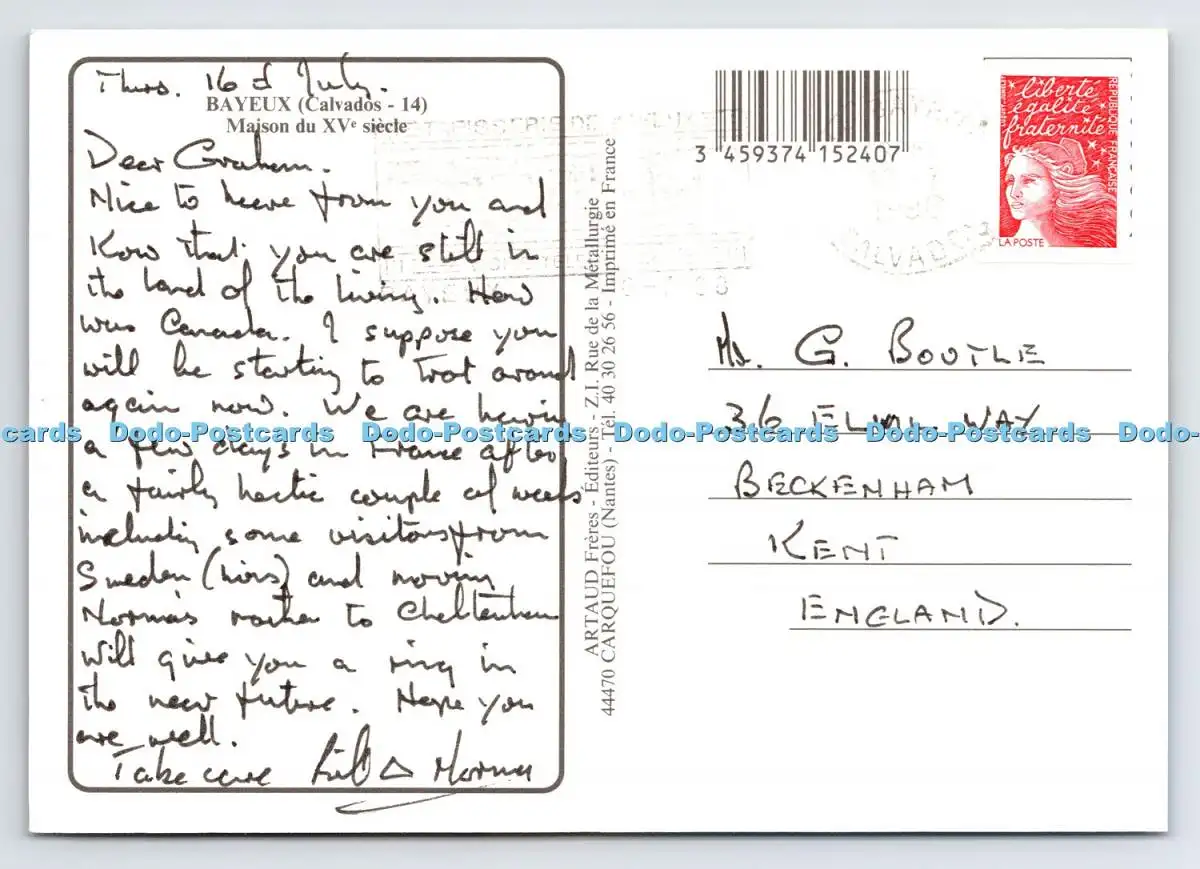 Thurs. 16th July.
BAYEUX (Calvados - 14)
Maison du XVe siècle
Dear Graham.
Nice to have from you and
know that you are still in
the land of the living. How
was Canada. I suppose you
will be starting to trot around
again now. We are having
a few days in France after
a fairly hectic couple of weeks
including some visitors from
Sweden (hers) and moving
Norma's mother to Cheltenham
Will give you a ring in
the near future. Hope you
are well.
Take care Norma
ARTAUD Frères - Éditeurs - Z.I. Rue de la Métallurgie
44470 CARQUEFOU (Nantes) - Tél. 40 30 26 56 - Imprimé en France
3 459374 152407
liberté
égalité
fraternité
RÉPUBLIQUE FRANÇAISE
LA POSTE
CALVADOS
Mr. G. BOUTLE
36 WAY
BECKENHAM
KENT
ENGLAND.
cards Dodo-Postcards Dodo-Postcards Dodo-Postcards Dodo-Postcards Dodo-